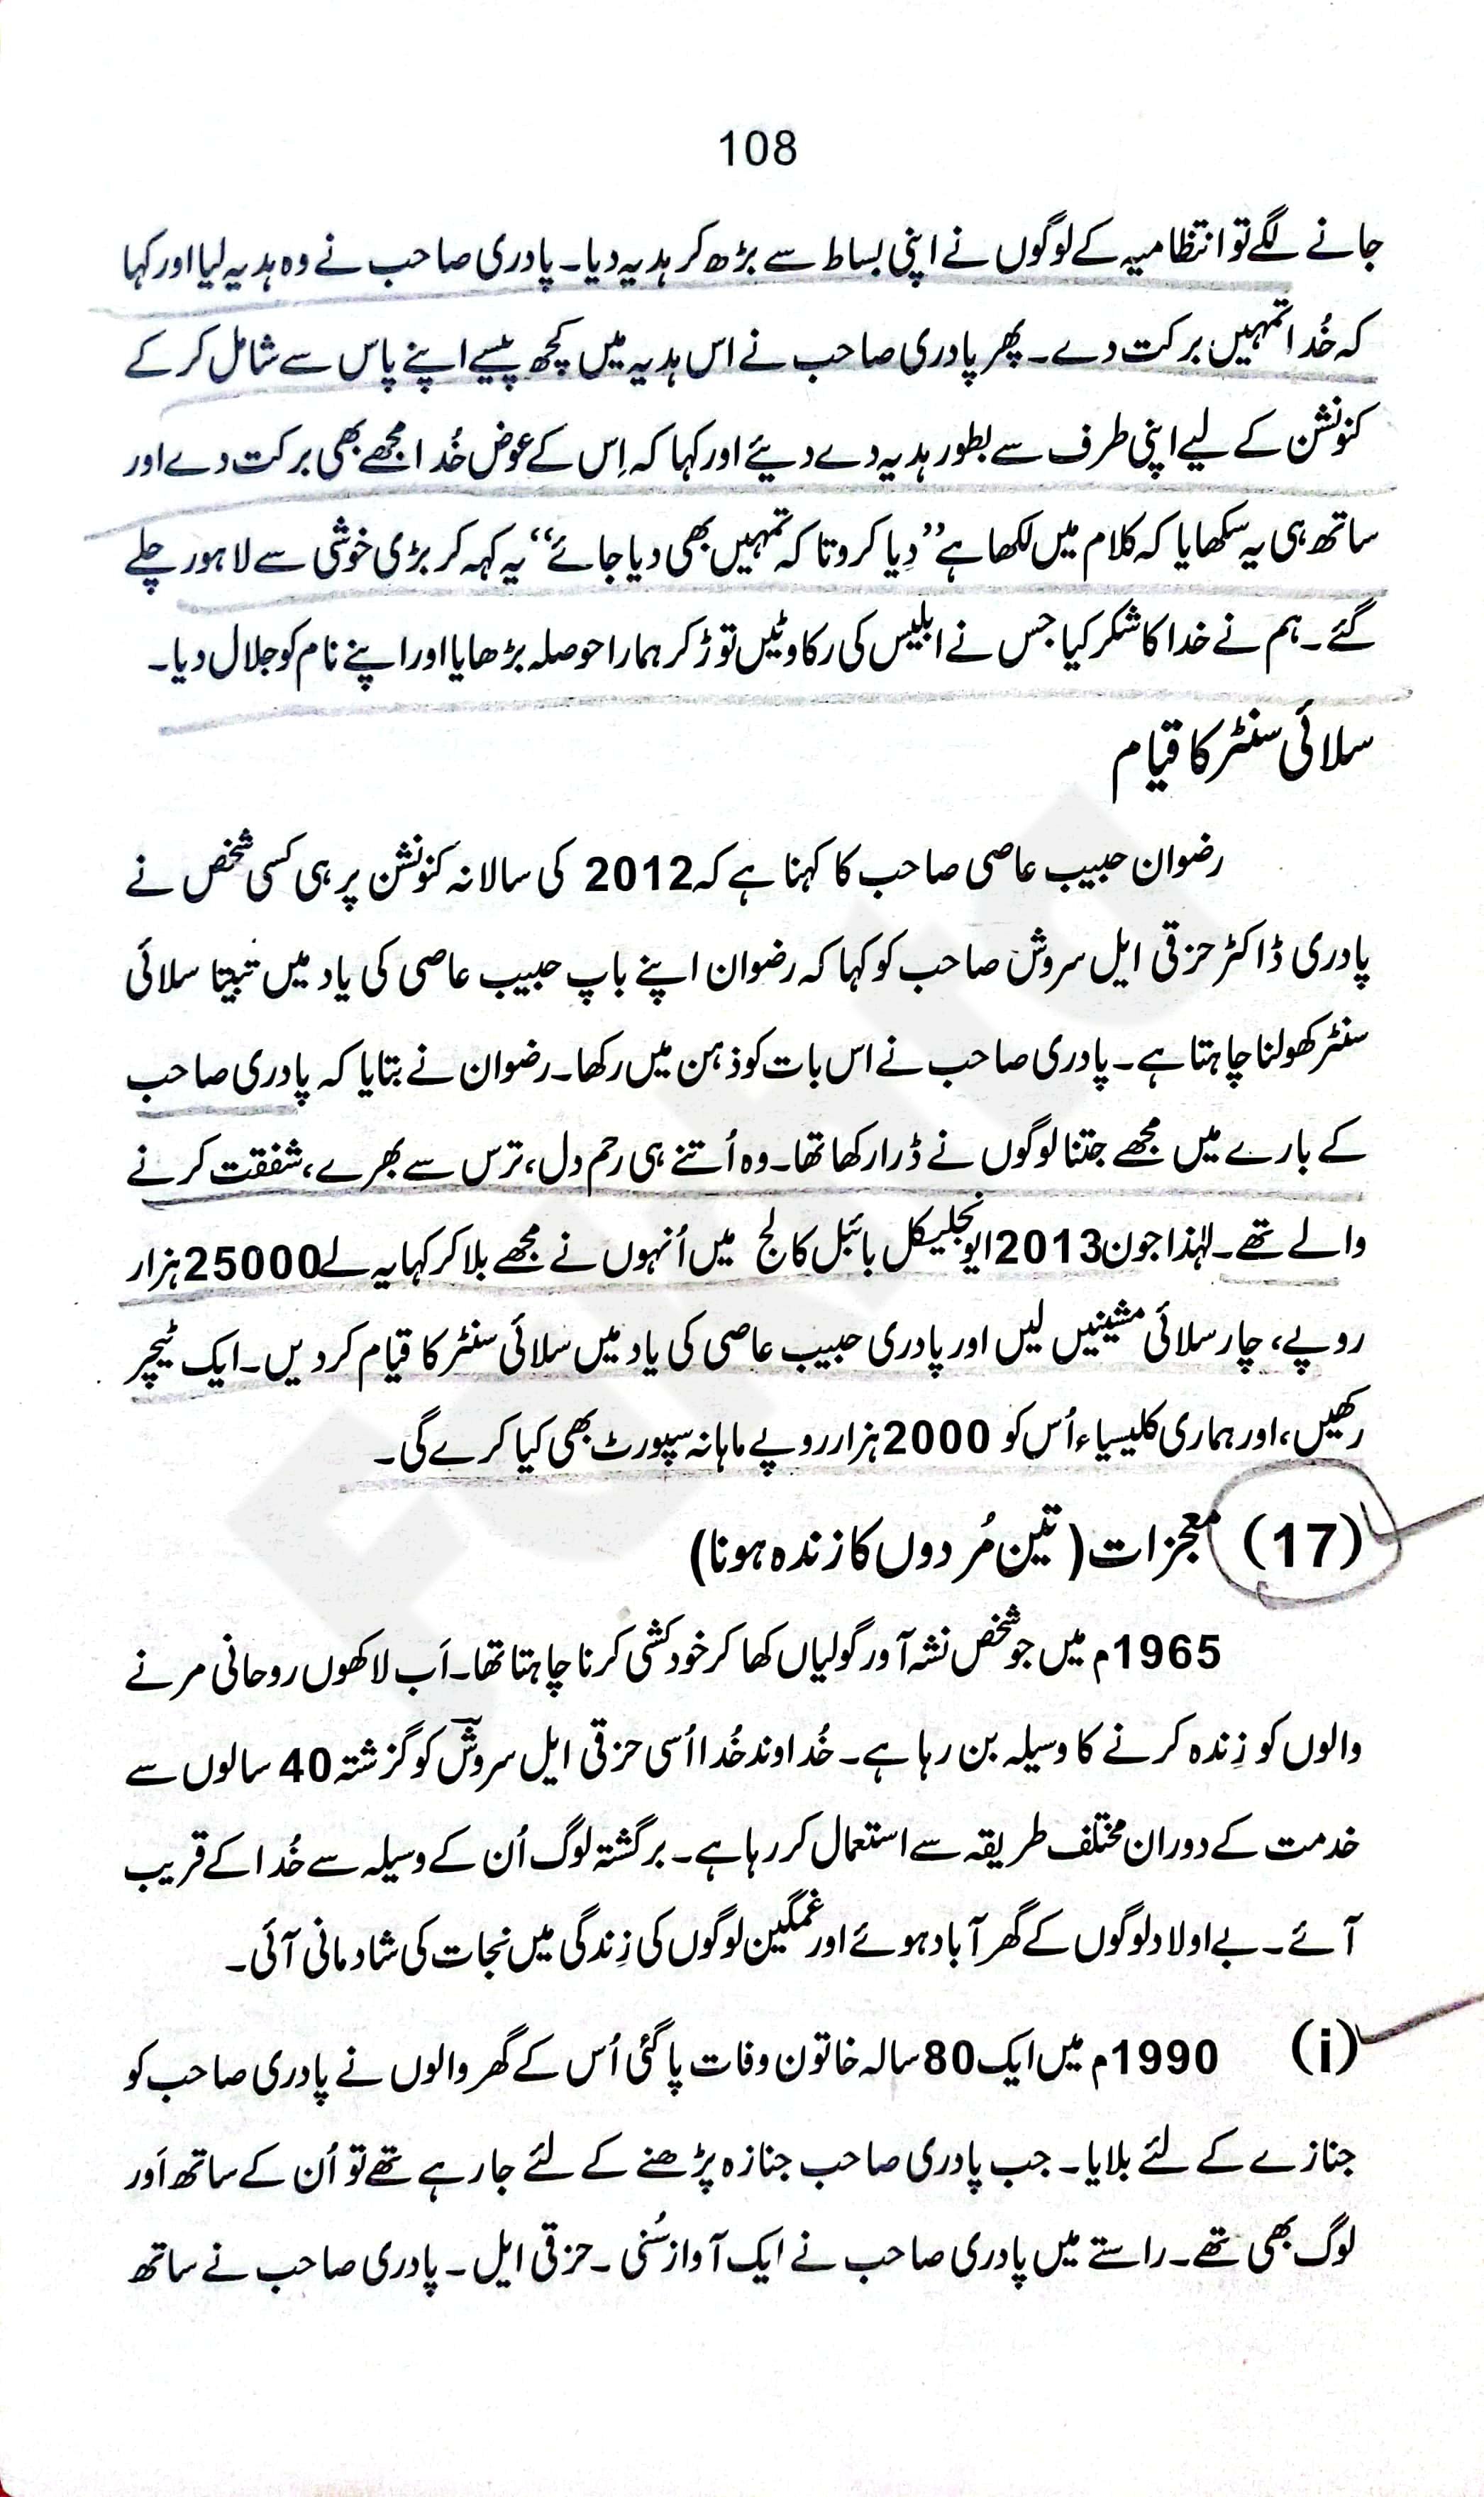 108
جانے لگے تو انتظامیہ کے لوگوں نے اپنی بساط سے بڑھ کر ہدیہ دیا۔ پادری صاحب نے وہ ہدیہ لیا اور کہا
کہ خُدا تمہیں برکت دے۔ پھر پادری صاحب نے اس ہدیہ میں کچھ پیسے اپنے پاس سے شامل کر کے
کنونشن کے لیے اپنی طرف سے بطور ہدیہ دے دیئے اور کہا کہ اِس کے عوض خُدا مجھے بھی برکت دے اور
ساتھ ہی یہ سکھایا کہ کلام میں لکھا ہے ’’دِیا کرو تا کہ تمہیں بھی دیا جائے‘‘ یہ کہہ کر بڑی خوشی سے لاہور چلے
گئے۔ ہم نے خدا کا شکر کیا جس نے ابلیس کی رکاوٹیں توڑ کر ہمارا حوصلہ بڑھایا اور اپنے نام کو جلال دیا۔
سلائی سنٹر کا قیام
رضوان حبیب عاصی صاحب کا کہنا ہے کہ 2012 کی سالانہ کنونشن پر ہی کسی شخص نے
پادری ڈاکٹر حزقی ایل سروش صاحب کو کہا کہ رضوان اپنے باپ حبیب عاصی کی یاد میں تبیتا سلائی
سنٹر کھولنا چاہتا ہے۔ پادری صاحب نے اس بات کو ذہن میں رکھا۔ رضوان نے بتایا کہ پادری صاحب
کے بارے میں مجھے جتنا لوگوں نے ڈرا رکھا تھا۔ وہ اُتنے ہی رحم دل، ترس سے بھرے، شفقت کرنے
والے تھے۔ لہٰذا جون 2013 ایونجلیکل بائبل کالج میں اُنہوں نے مجھے بلا کر کہا یہ لے 25000 ہزار
روپے، چار سلائی مشینیں لیں اور پادری حبیب عاصی کی یاد میں سلائی سنٹر کا قیام کر دیں۔ ایک ٹیچر
رکھیں، اور ہماری کلیسیاء اُس کو 2000 ہزار روپے ماہانہ سپورٹ بھی کیا کرے گی۔
(17) معجزات (تین مُردوں کا زندہ ہونا)
1965م میں جو شخص نشہ آور گولیاں کھا کر خودکشی کرنا چاہتا تھا۔ اَب لاکھوں روحانی مرنے
والوں کو زِندہ کرنے کا وسیلہ بن رہا ہے۔ خُداوند خُدا اُسی حزقی ایل سروشؔ کو گزشتہ 40 سالوں سے
خدمت کے دوران مختلف طریقہ سے استعمال کر رہا ہے۔ برگشتہ لوگ اُن کے وسیلہ سے خُدا کے قریب
آئے۔ بے اولاد لوگوں کے گھر آباد ہوئے اور غمگین لوگوں کی زِندگی میں نجات کی شادمانی آئی۔
(i) 1990م میں ایک 80 سالہ خاتون وفات پا گئی اُس کے گھر والوں نے پادری صاحب کو
جنازے کے لئے بلایا۔ جب پادری صاحب جنازہ پڑھنے کے لئے جا رہے تھے تو اُن کے ساتھ اَور
لوگ بھی تھے۔ راستے میں پادری صاحب نے ایک آواز سُنی۔ حزقی ایل۔ پادری صاحب نے ساتھ